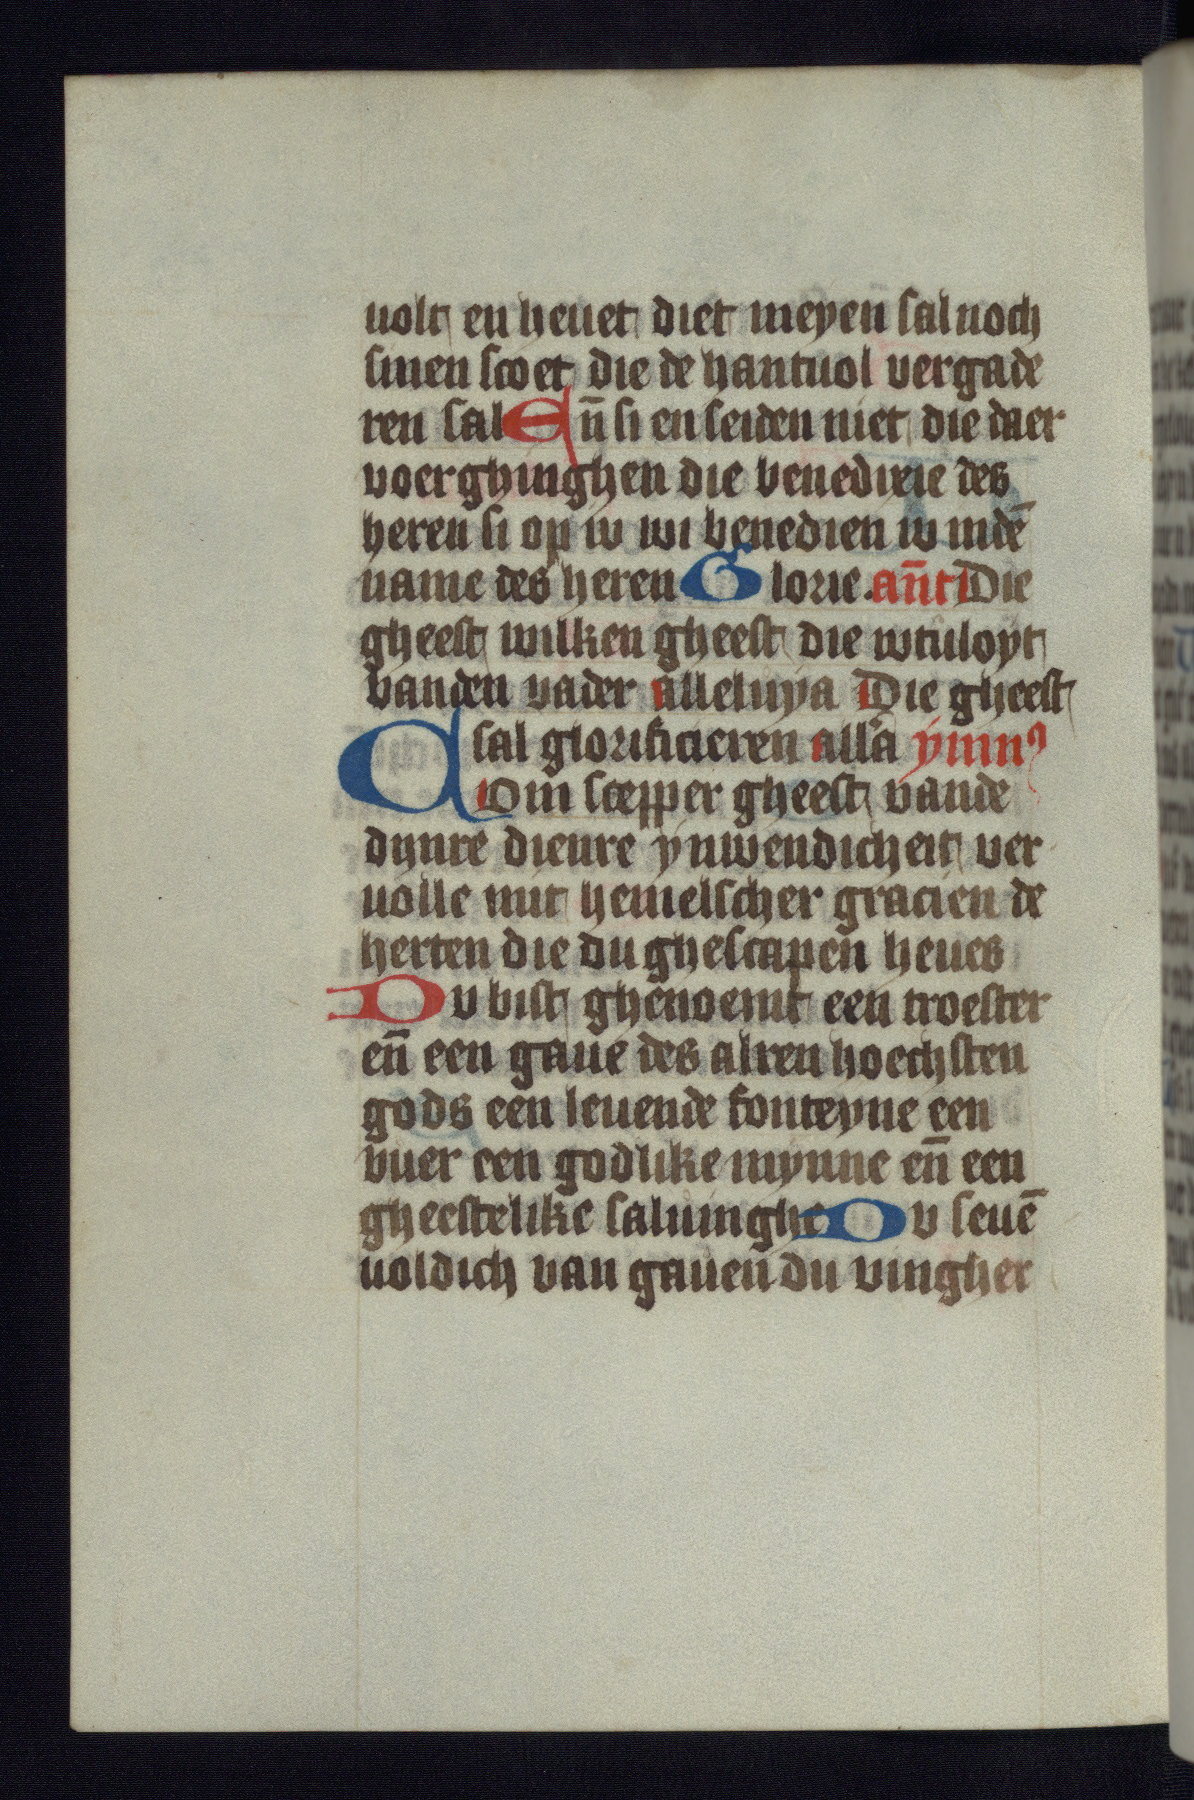 uolt en heuet diet meyen sal noch
sinen scoet die de hantuol vergade
ren sal En̄ si en seiden niet die daer
voerghinghen die benedixie des
heren si op iu wi benedien iu indē
name des heren Glorie. an̄t Die
gheest wilken gheest die wtuloyt
vanden vader alleluya Die gheest
sal glorificieren alla ymnꝰ
Com scepper gheest vande
dynre dienre ynwendicheit ver
uolle mit hemelscher gracien de
herten die du ghescapen heues
Du bist ghenoemt een troester
en̄ een gaue des alren hoechsten
gods een leuende fonteyne een
vuer een godlike mynne en̄ een
gheestelike saluinghe Du seuē
uoldich van gauen du vingher